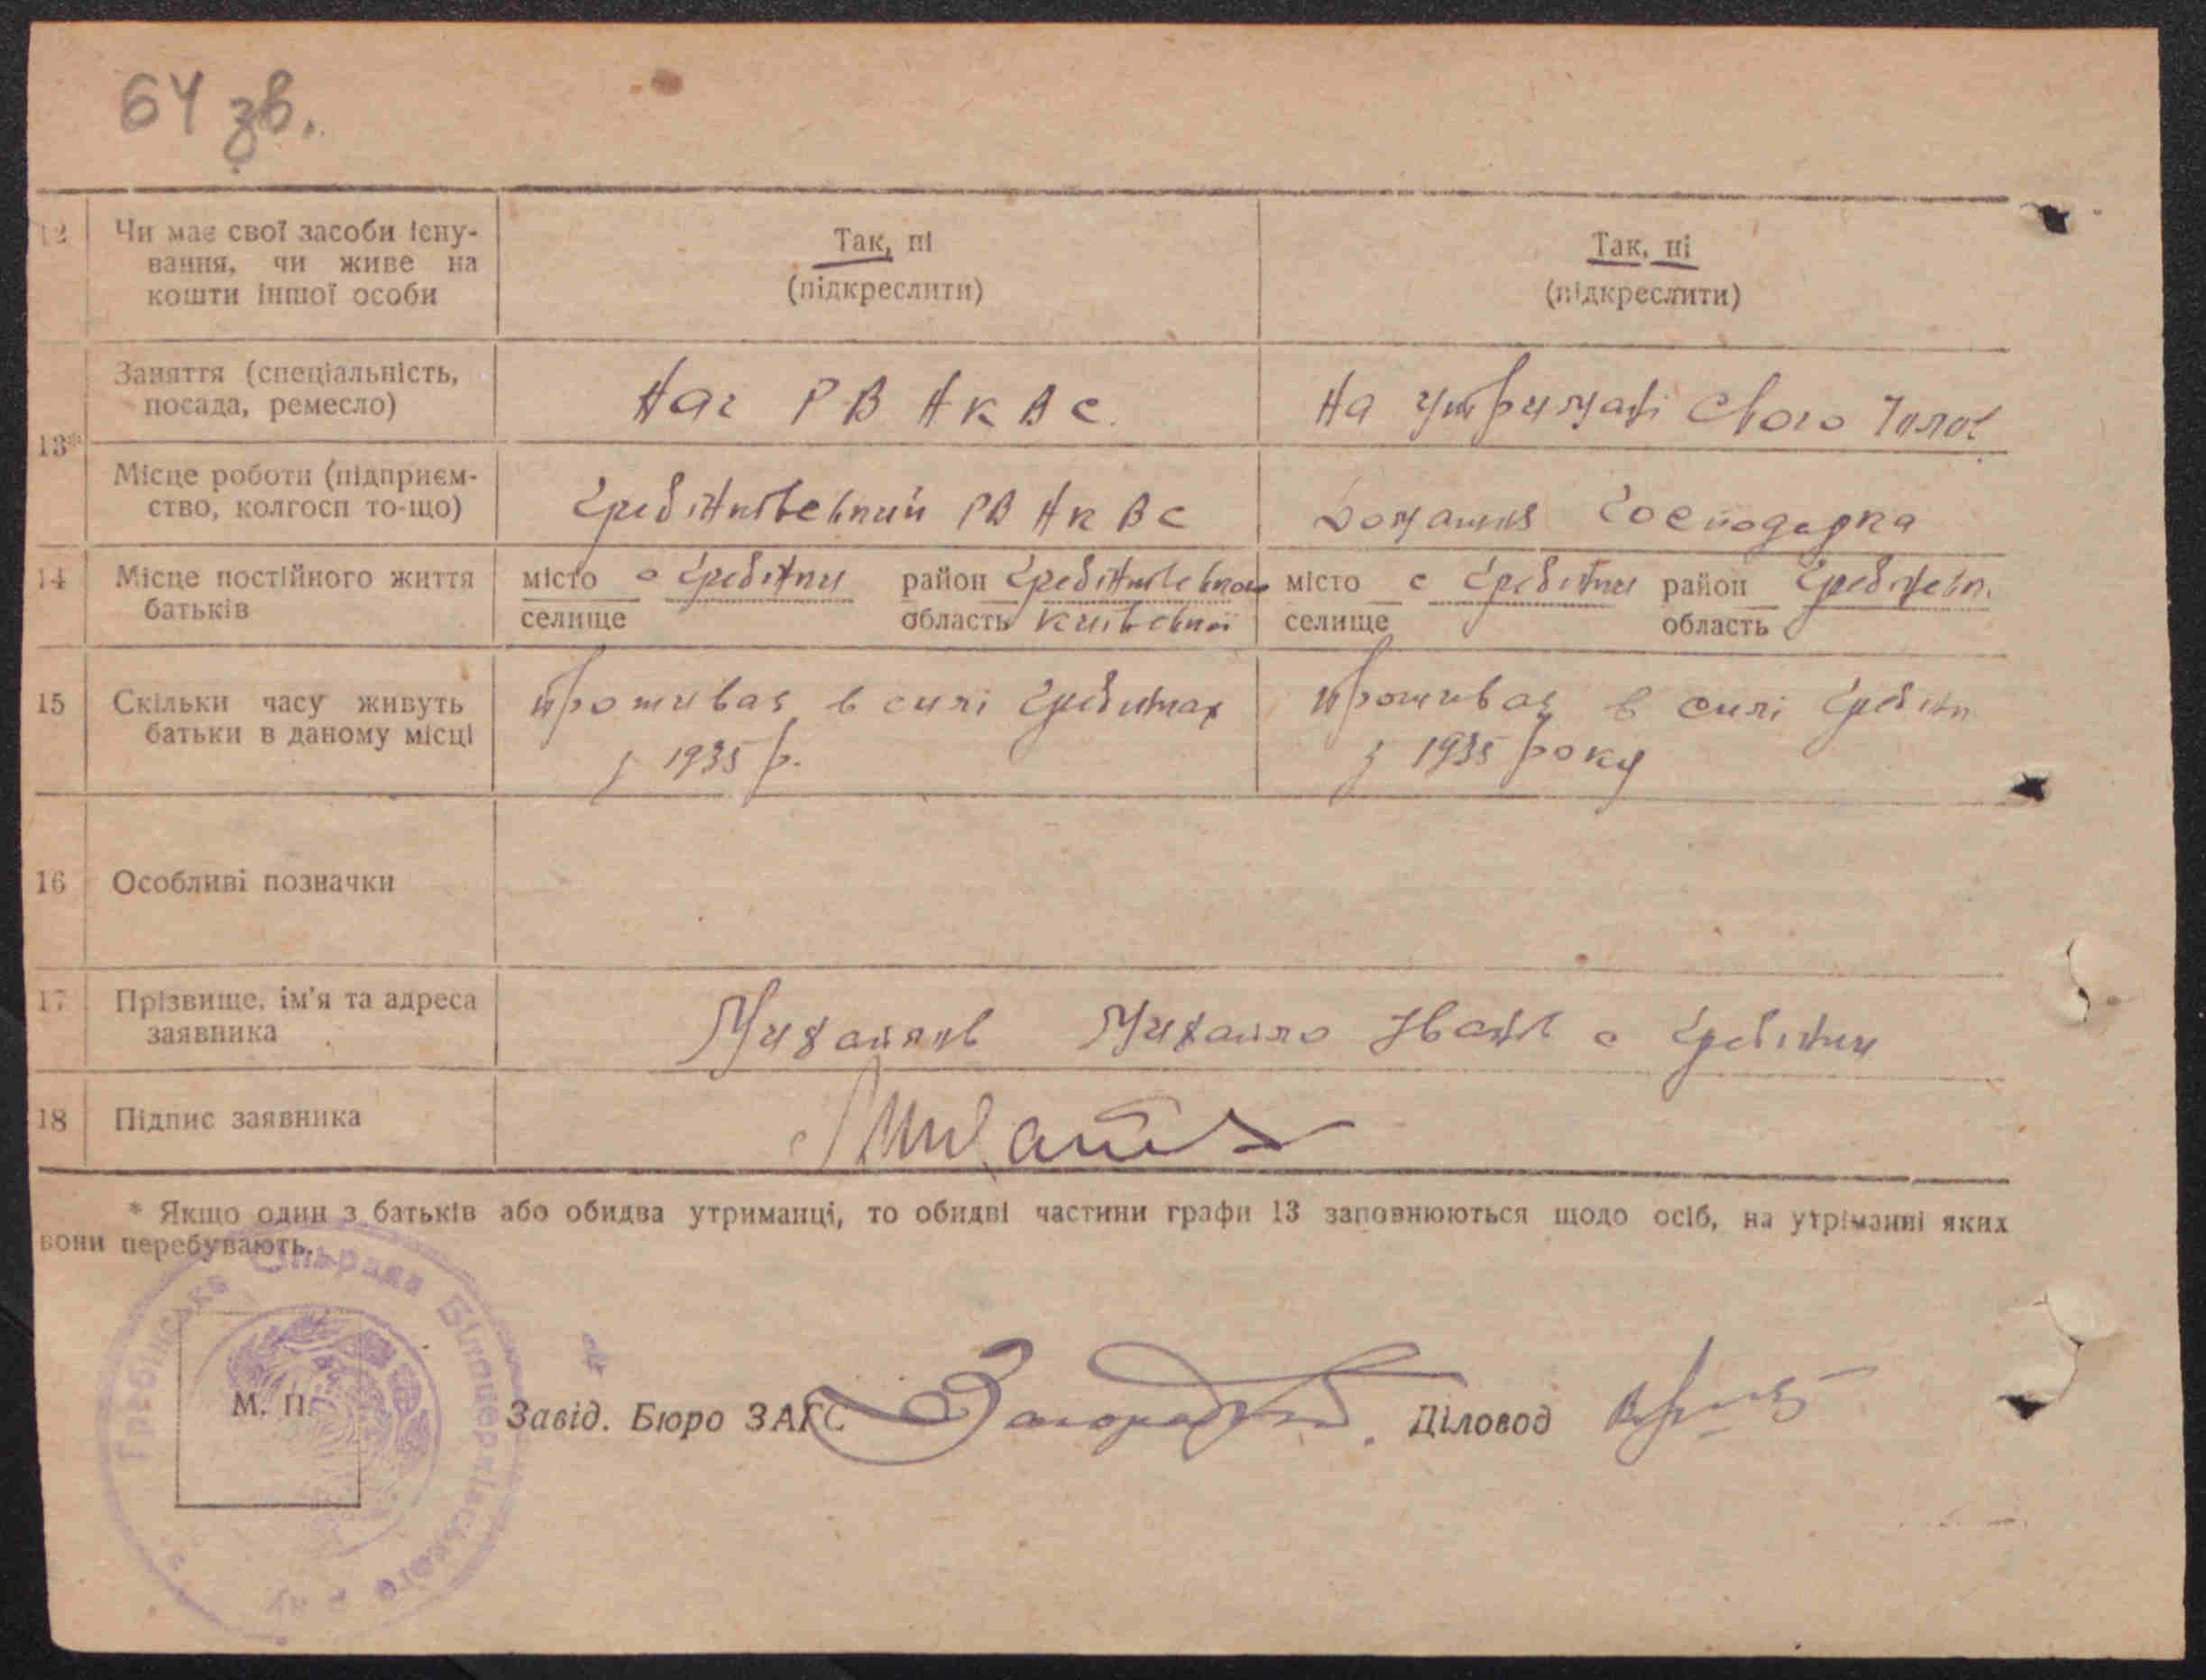 64 зв.
12 Чи має свої засоби існу-
вання, чи живе на
кошти іншої особи
Так, ні
(підкреслити)
Так, ні
(підкреслити)
13*
Заняття (спеціальність,
посада, ремесло)
Нач РВ НКВС.
На утримані свого чолов
Місце роботи (підприєм-
ство, колгосп то-що)
Гребінківський РВ НКВС
Домашня господарка
14 Місце постійного життя
батьків
місто с Гребінки район Гребінківського
селище область Київської
місто с Гребінки район Гребінківськ.
селище область
15 Скільки часу живуть
батьки в даному місці
проживає в силі Гребінках
з 1935 р.
проживає в силі Гребінк
з 1935 року
16 Особливі позначки
17 Прізвище, ім'я та адреса
заявника
Михайлов Михайло Іван с Гребінки
18 Підпис заявника
* Якщо один з батьків або обидва утриманці, то обидві частини графи 13 заповнюються щодо осіб, на утріманні яких
вони перебувають.
Гребінська Сільрада Білоцерківського р-ну
М. П.
Завід. Бюро ЗАГС
Діловод